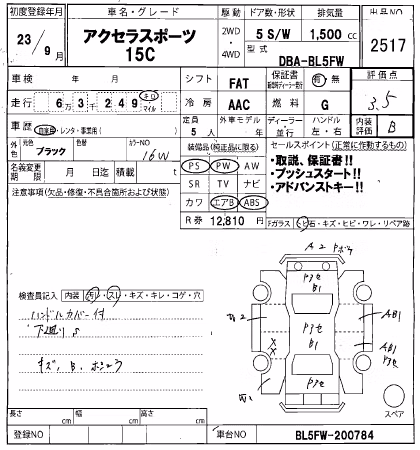 初度登録年月 車名・グレード 駆動 ドア数・形状 排気量 出品NO
23/9月 アクセラスポーツ 2WD・4WD 5 S/W 1,500 cc 2517
15C 型式 DBA-BL5FW
車検 年 月 シフト FAT 保証書 有・無 評価点
走行 6万3千249 キロ マイル 冷房 AAC 燃料 G 3.5
車歴 自家用・レンタ・事業用( ) 定員 5人 外車モデル 年 ディーラー 並行 ハンドル 左・右 内装評価 B
外色 元色 ブラック 色替 カラーNO 16W 装備品(純正品に限る) セールスポイント(正常に作動するもの)
名義変更期限 月 日迄 積載 t PS PW AW ・取説、保証書!!
注意事項(欠品・修復・不具合箇所および状態) SR TV ナビ ・プッシュスタート!!
カワ エアB ABS ・アドバンストキー!!
R券 12,810 円 Fガラス ヒビ石・キズ・ヒビ・ワレ・リペア跡
A2
検査員記入 内装 汚レ・スレ・キズ・キレ・コゲ・穴
B1
ハンドルカバー付
AB1
AB1
キズ、B、
スペア
長さ cm 幅 cm 高さ cm
登録NO 車台NO BL5FW-200784